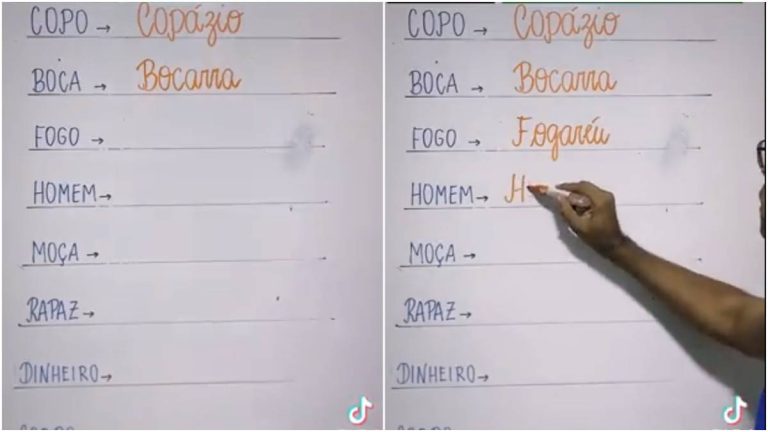 COPO → Copázio
BOCA → Bocarra
FOGO →
HOMEM →
MOÇA →
RAPAZ →
DINHEIRO →
COPO → Copázio
BOCA → Bocarra
FOGO → Fogaréu
HOMEM → H
MOÇA →
RAPAZ →
DINHEIRO →